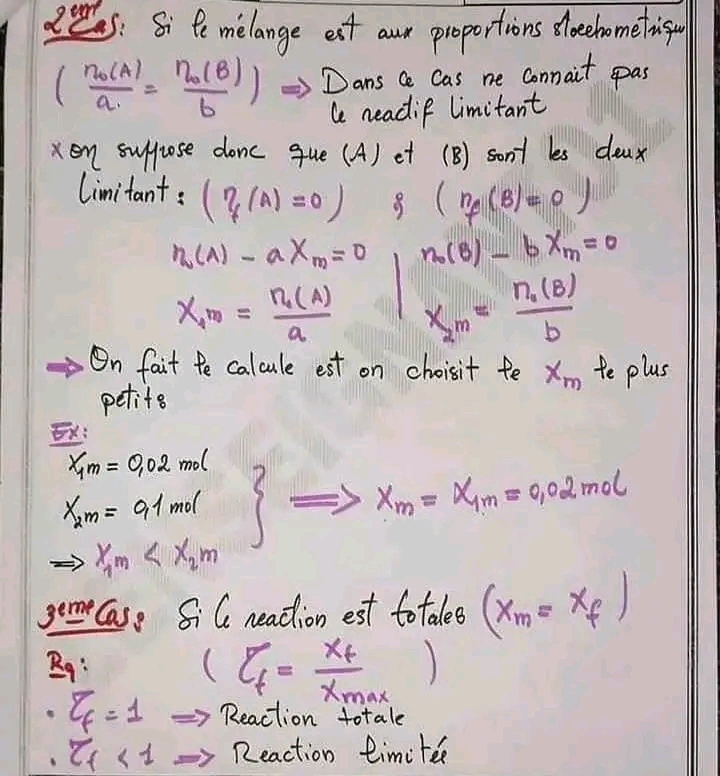 2ème Cas: Si le mélange est aux proportions stoechometrique
( n₀(A)/a = n₀(B)/b ) ⇒ Dans ce Cas ne connait pas
le reactif limitant
x on suppose donc que (A) et (B) sont les deux
limitant : ( nf(A) = 0 ) & ( nf(B) = 0 )
n₀(A) - a Xm = 0 | n₀(B) - b Xm = 0
X₁m = n₀(A)/a | X₂m = n₀(B)/b
⇒ On fait le calcule est on choisit le Xm le plus
petits
Ex:
X₁m = 0,02 mol
X₂m = 0,1 mol } ⇒ Xm = X₁m = 0,02 mol
⇒ X₁m < X₂m
3eme Cas: Si le reaction est totales (Xm = Xf)
Rq: ( τf = Xf/Xmax )
. τf = 1 ⇒ Reaction totale
. τf < 1 ⇒ Reaction limitée